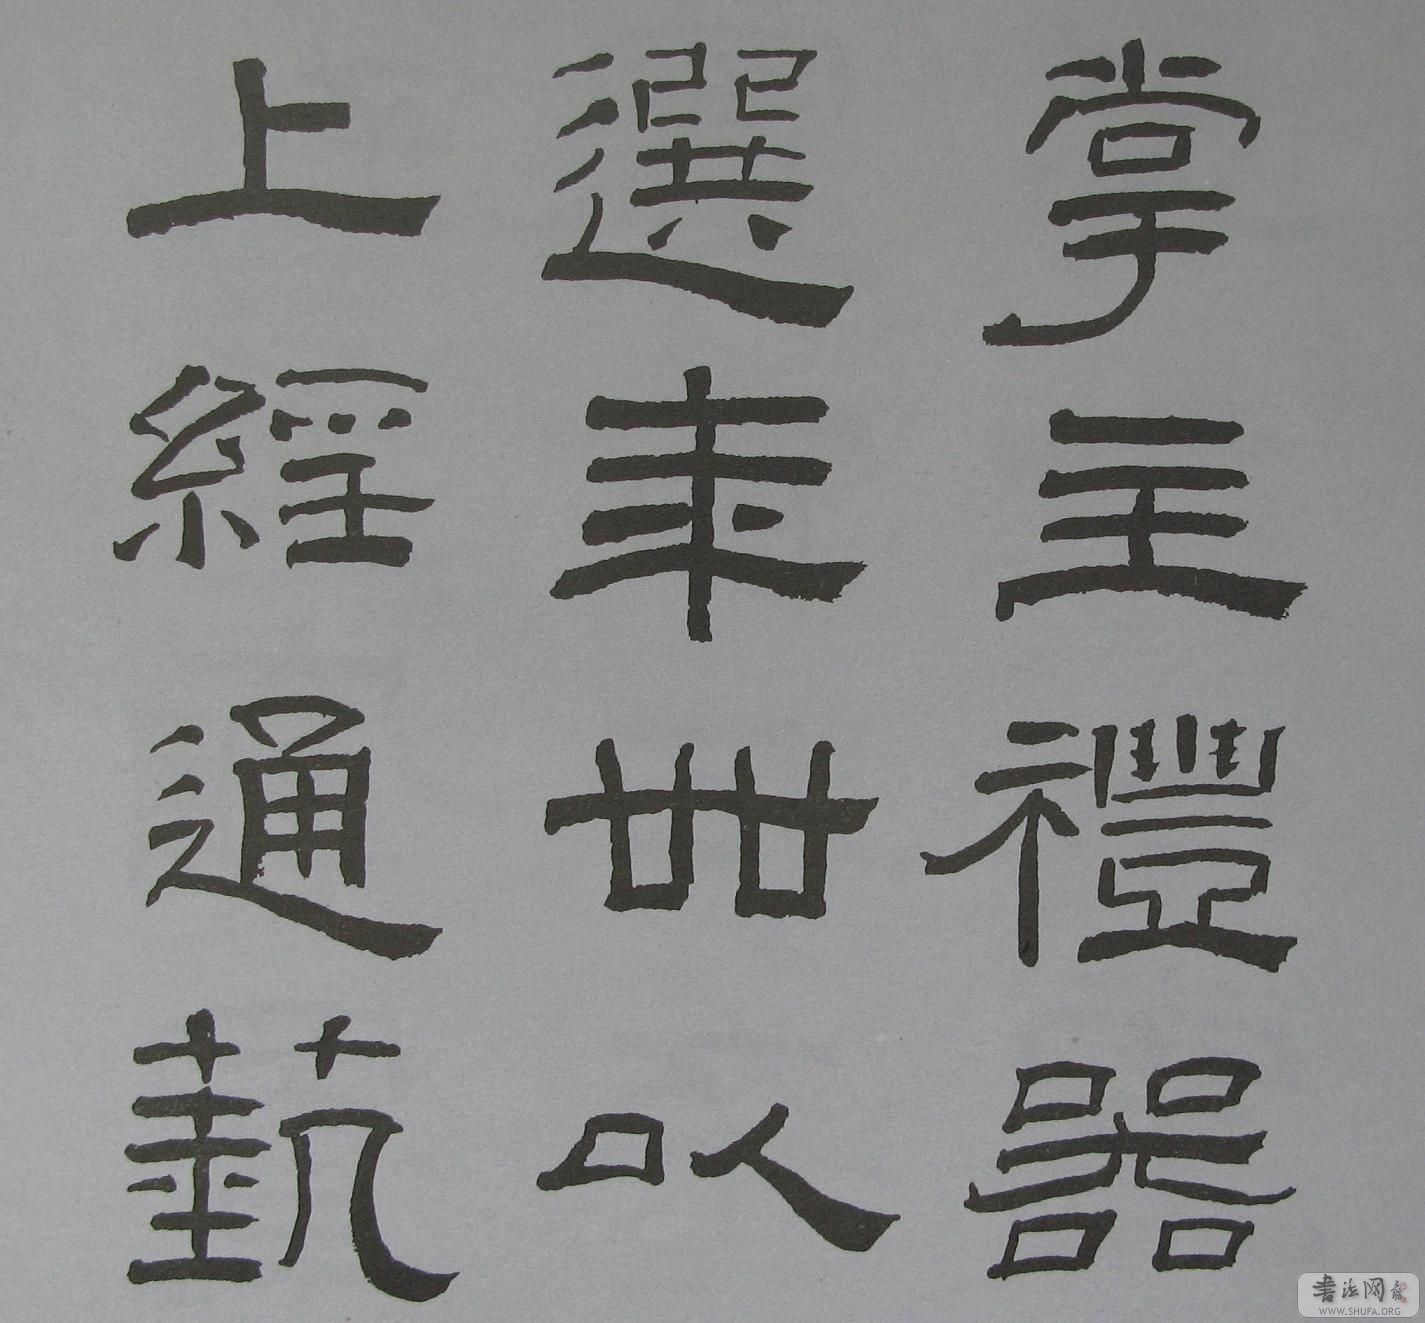 掌主禮器
選年卌以
上經通藝
书法网
WWW.SHUFA.ORG